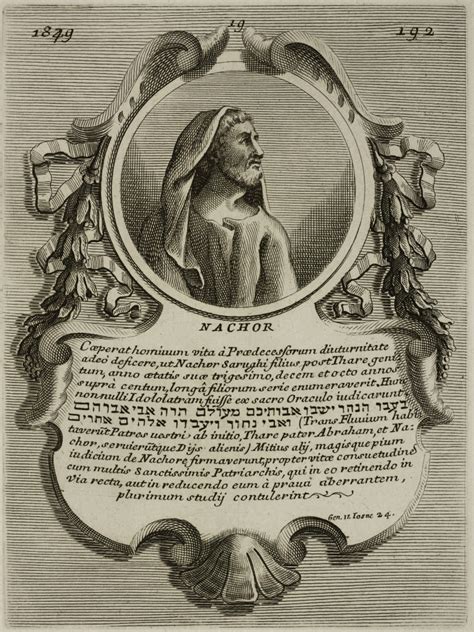 1849
19
192
NACHOR
Cœperat hominum vita à Prædecessorum diuturnitate
adeò deficere, ut Nachor Sarughi filius post Thare geni
tum, anno ætatis suæ trigesimo, decem et octo annos
suprà centum, longâ filiorum serie enumeraverit. Hunc
nonnulli Idololatram fuisse ex sacro Oraculo iudicarunt
בעבר הנהר ישבו אבותיכם מעולם תרה אבי אברהם
ואבי נחור ויעבדו אלהים אחרים (Trans Fluuium habi
taverũt Patres uestri ab initio, Thare pater Abraham, et Na
chor, seruierũtque Dijs alienis) Mitius alij, magisque pium
iudicium de Nachore firmaverunt, propter vitæ consuetudinē
cum multis Sanctissimis Patriarchis, qui in eo retinendo in
via recta, aut in reducendo eum à prauâ aberrantem,
plurimum studij contulerint
Gen. 11. Iosue 24.